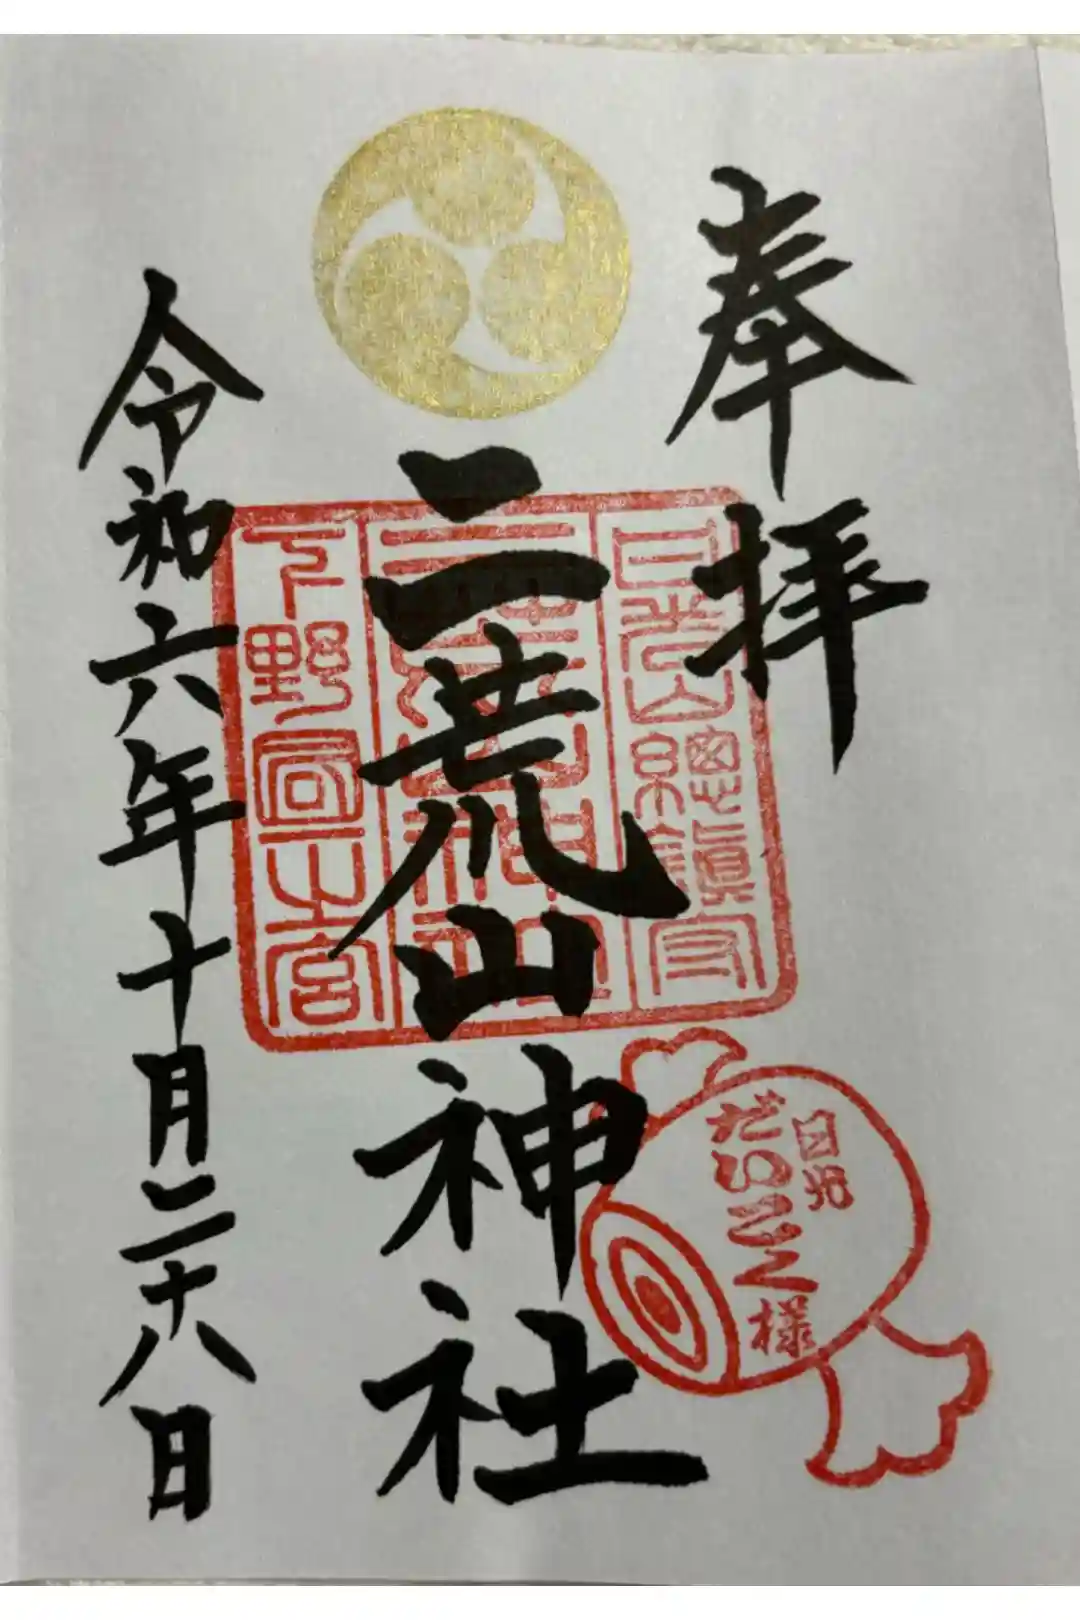 奉拝
日光山總鎮守
二荒山神社
二荒山神社
下野國一之宮
日光
だいこく様
令和六年十月二十八日